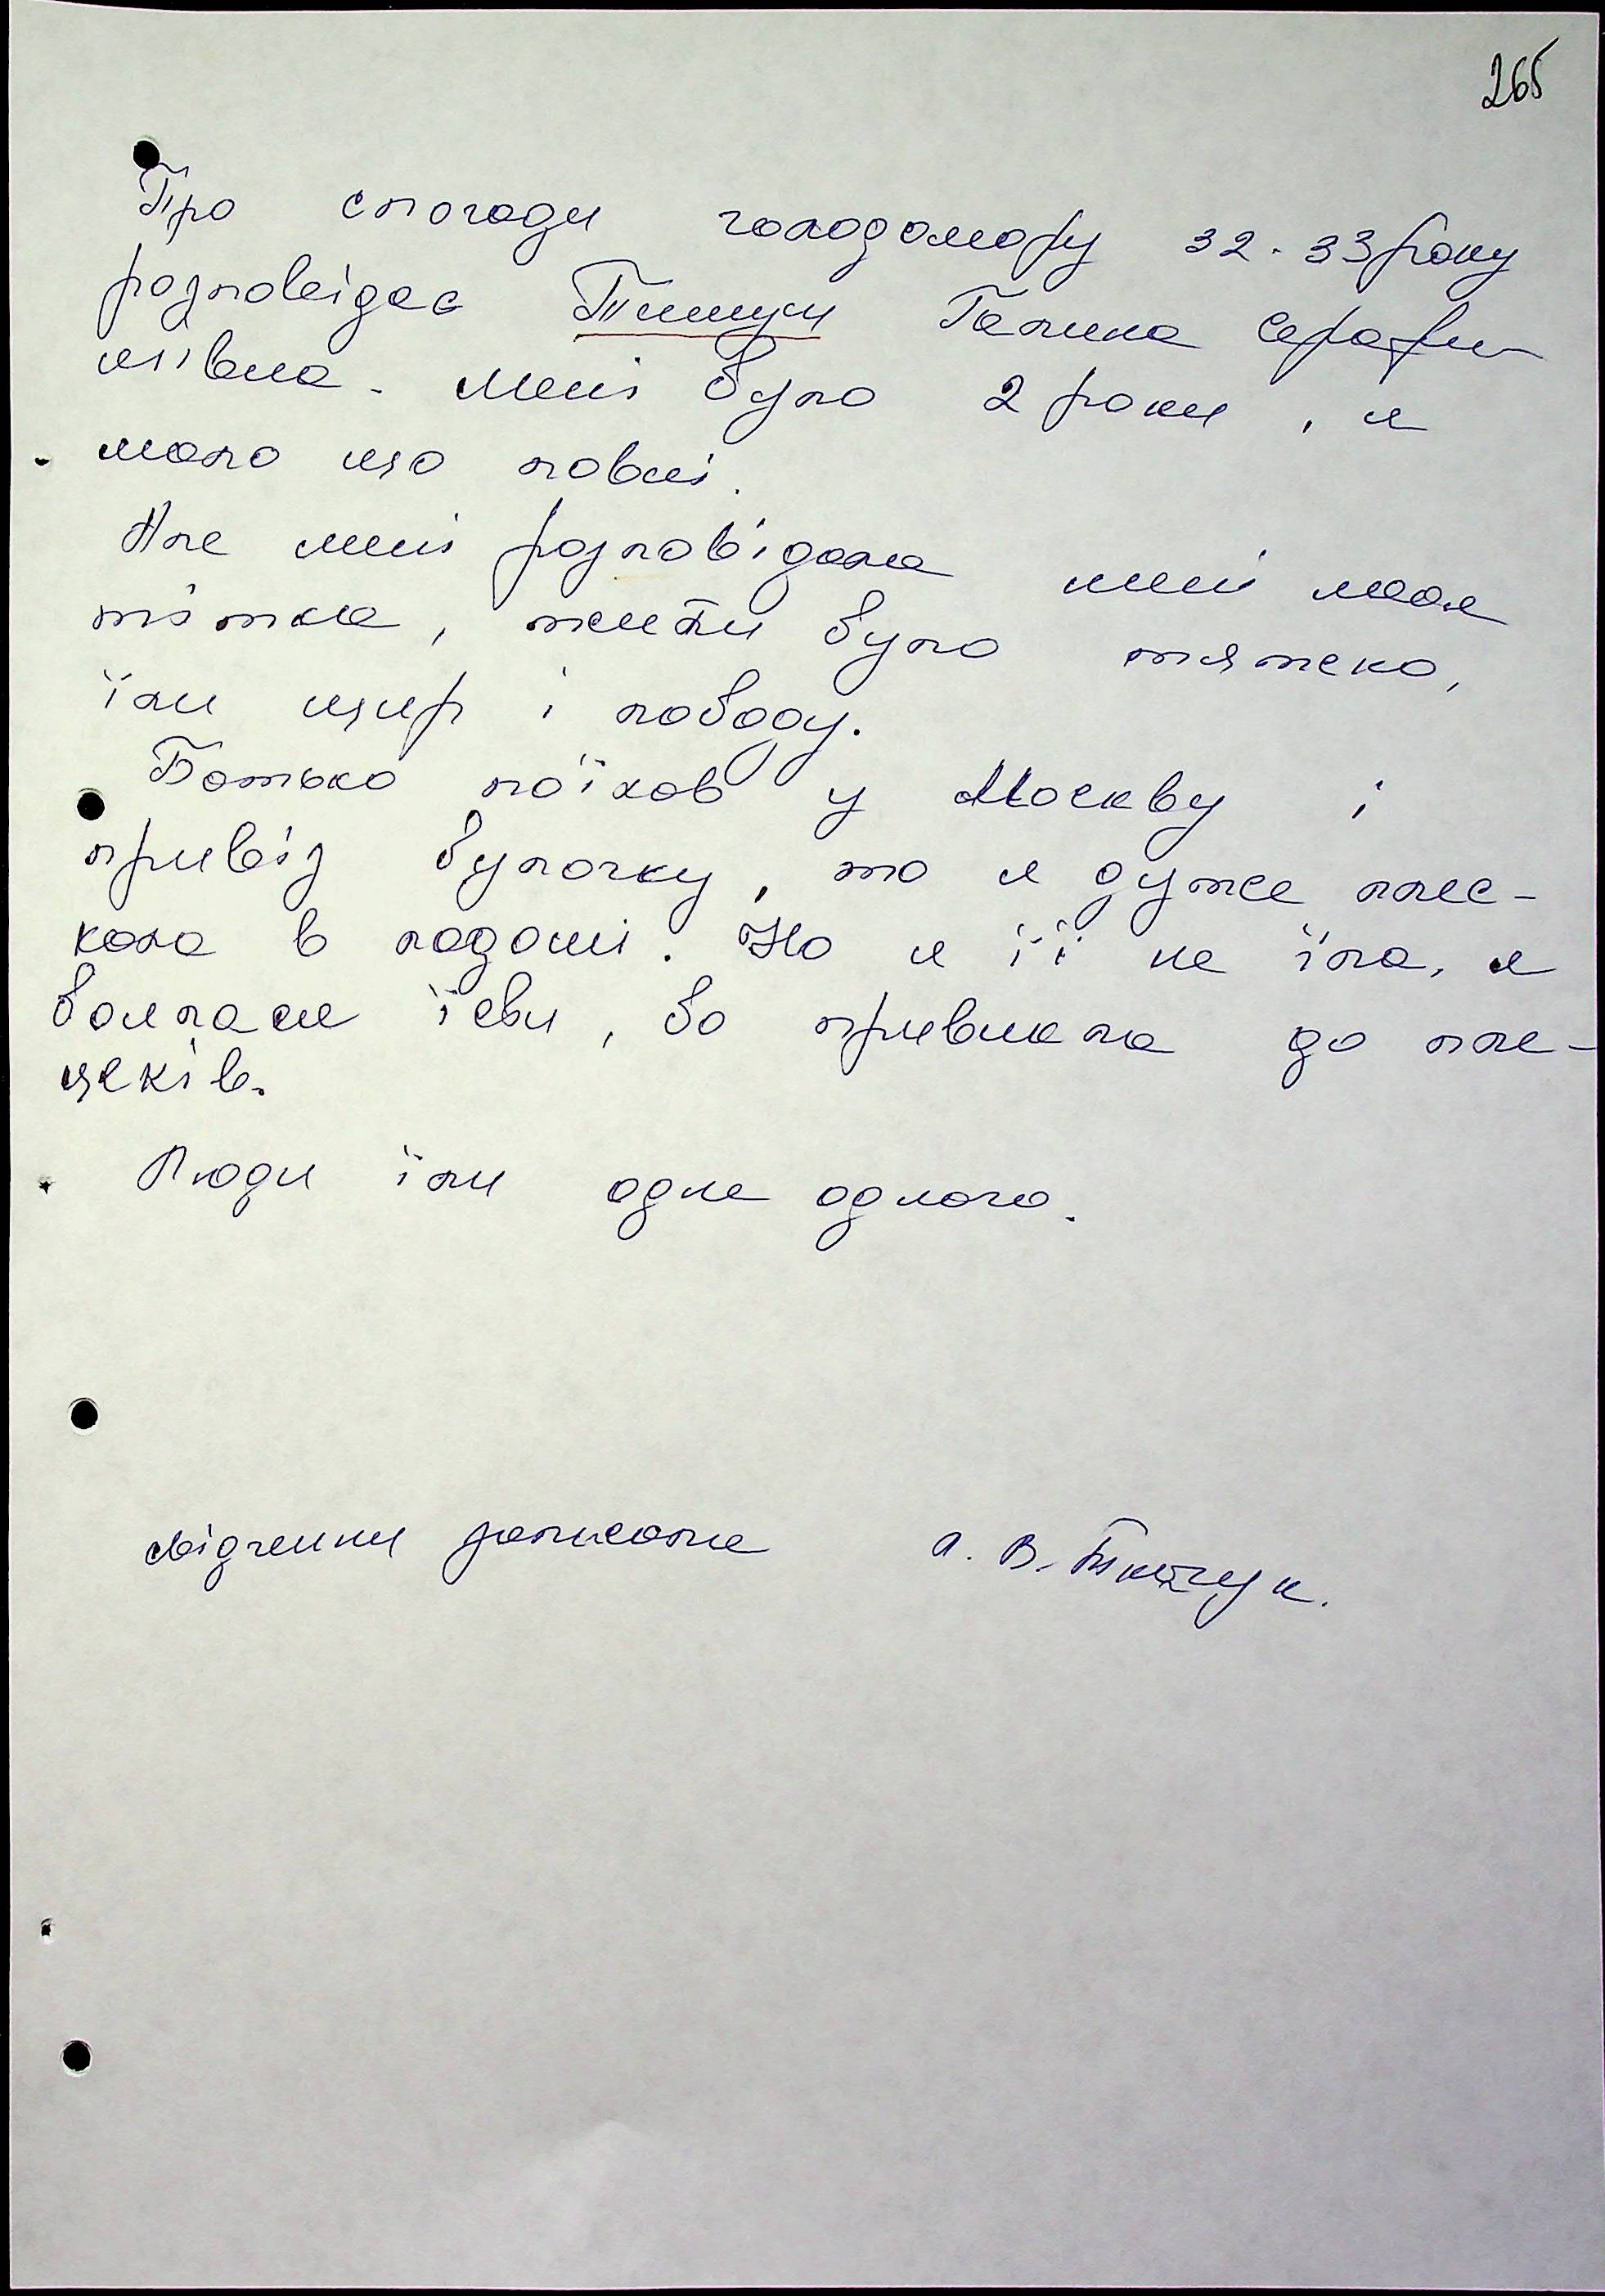 265
Про спогади голодомору 32-33 року
розповідає Галина Серафи-
мівна. Мені було 2 роки, я
мало що помні.
Але мені розповідала мені моя
тітка, жити було тяжко,
їли щир і лободу.
Батько поїхав у Москву і
привіз булочку, то я дуже плес-
кала в ладоні. Но я її не їла, я
боялася їсти, бо привикла до пле-
цеків.
Люди їли одне одного.
свідчення записала А. В. Ткачук.